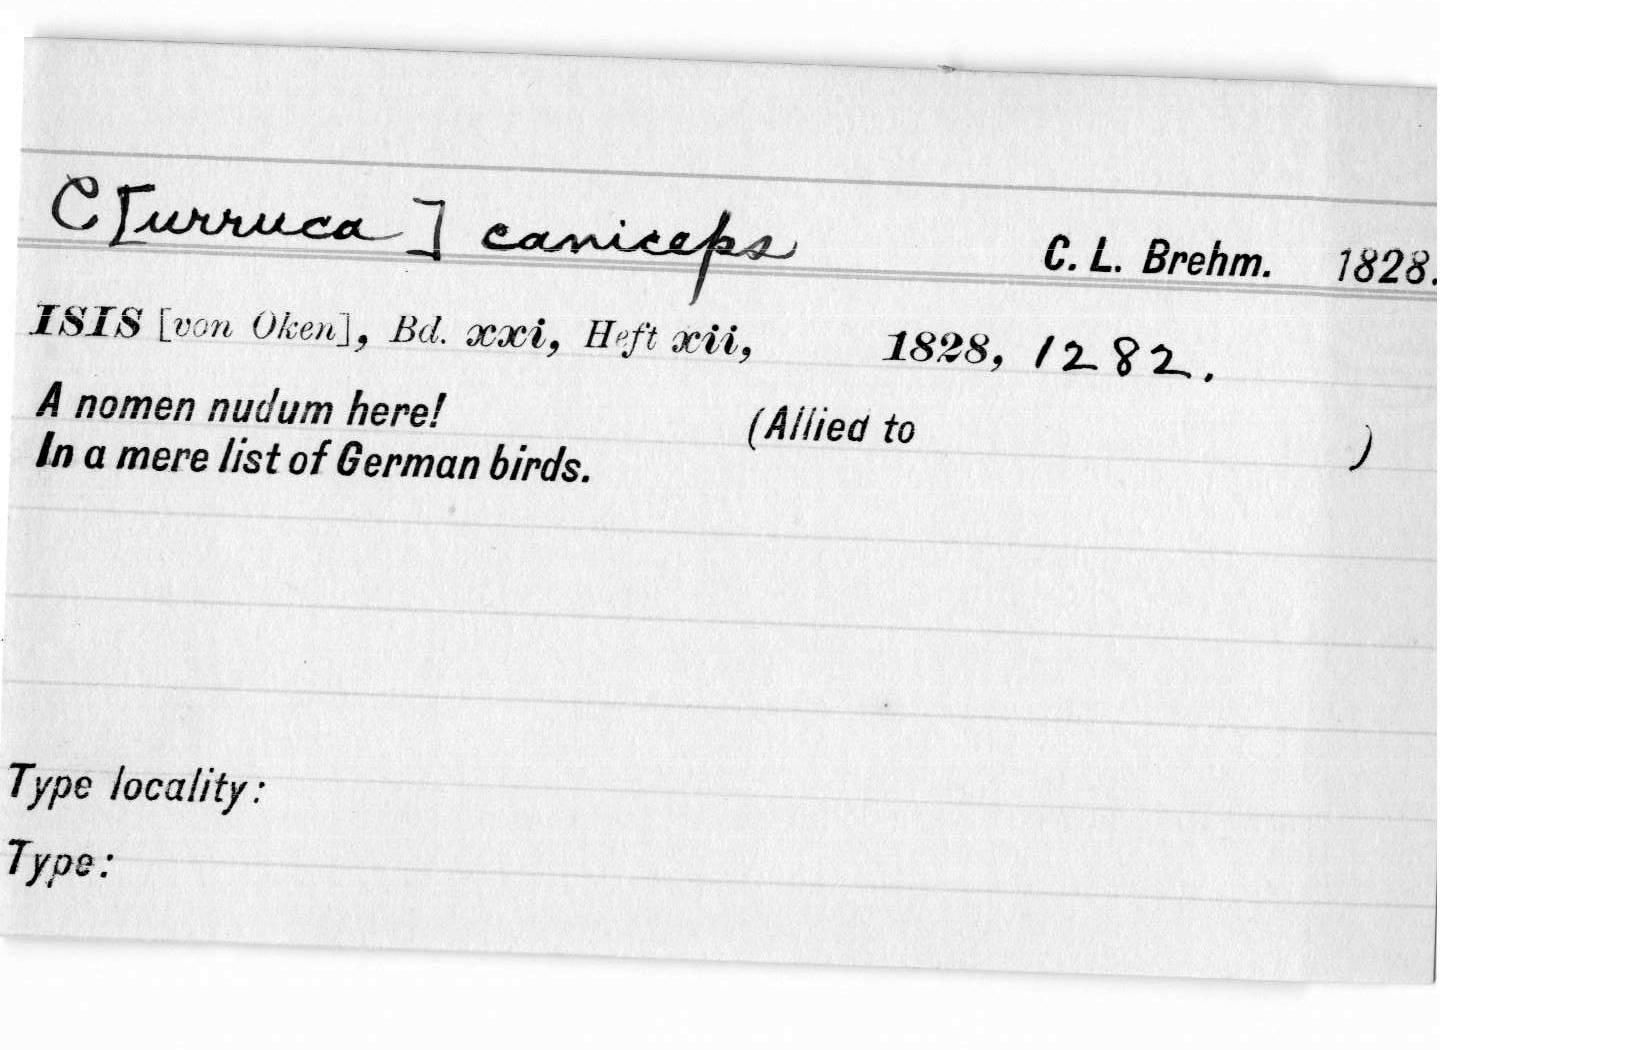 C[urruca] caniceps C. L. Brehm. 1828.
ISIS [von Oken], Bd. xxi, Heft xii, 1828, 1282.
A nomen nudum here! (Allied to )
In a mere list of German birds.
Type locality:
Type: